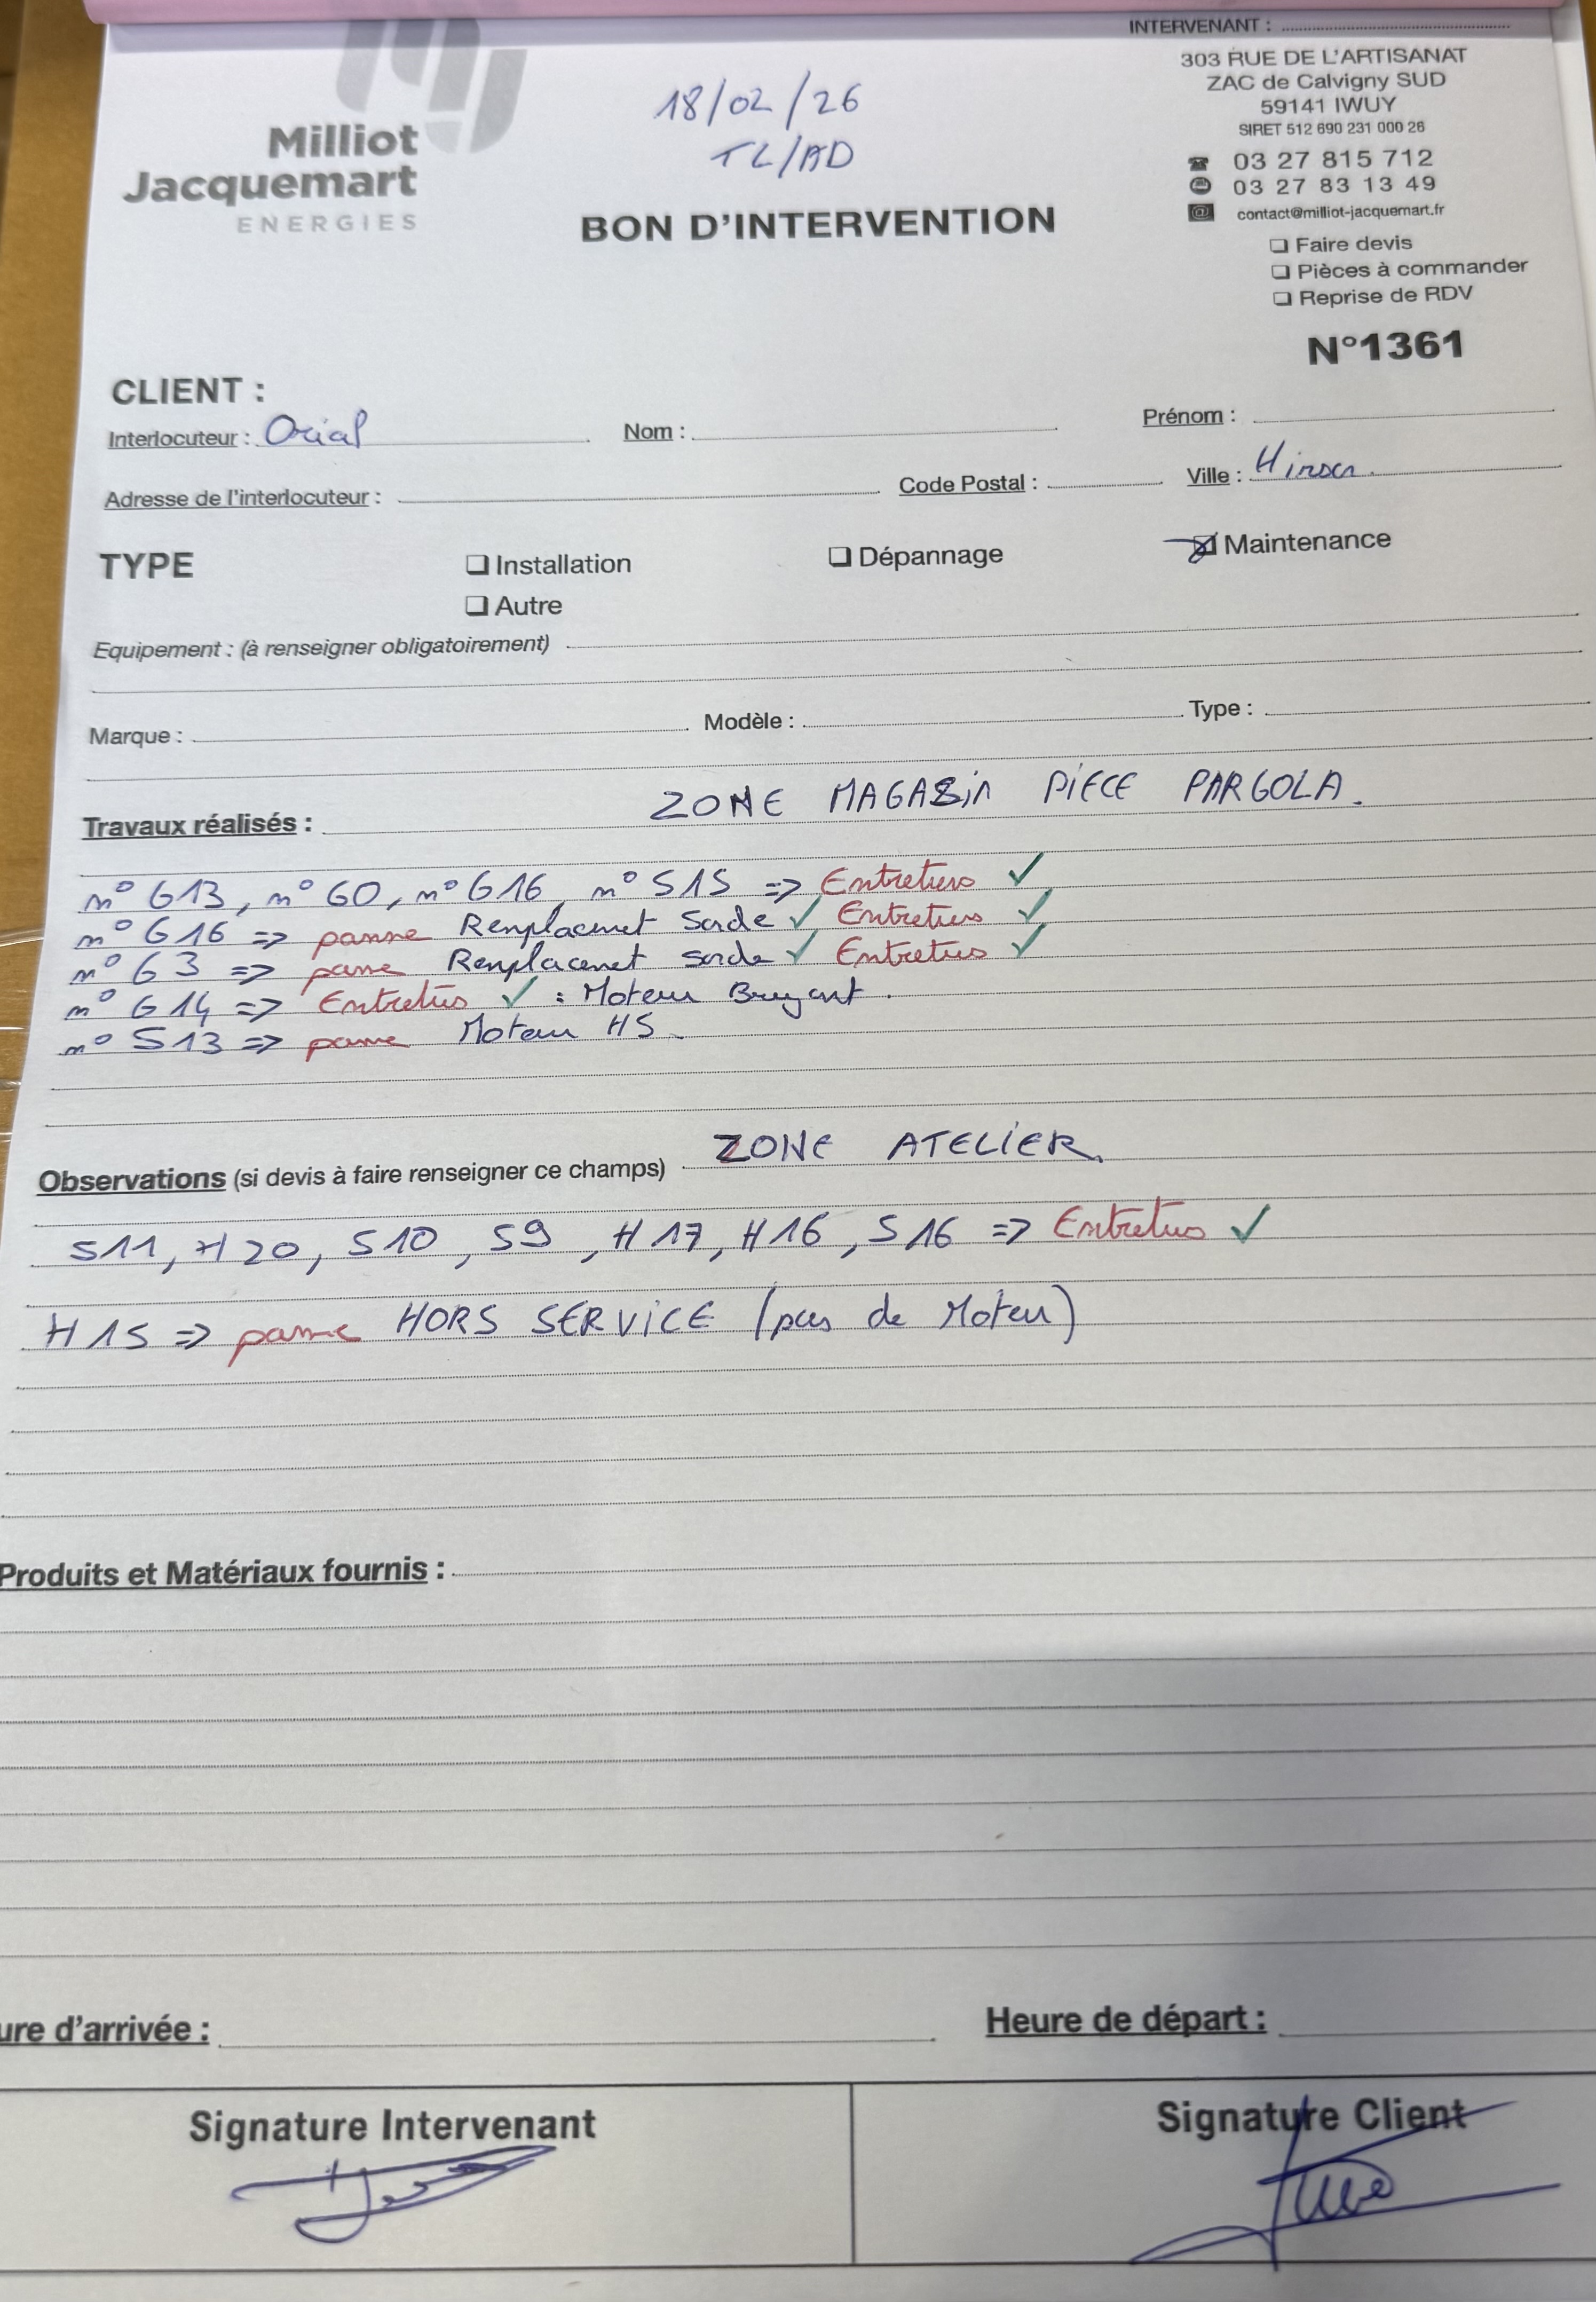 INTERVENANT :
303 RUE DE L'ARTISANAT
ZAC de Calvigny SUD
59141 IWUY
SIRET 512 690 231 000 26
03 27 815 712
03 27 83 13 49
contact@milliot-jacquemart.fr
Milliot
Jacquemart
ENERGIES
18/02/26
TL/AD
BON D'INTERVENTION
❑ Faire devis
❑ Pièces à commander
❑ Reprise de RDV
N°1361
CLIENT :
Interlocuteur : Orial Nom : Prénom :
Adresse de l'interlocuteur : Code Postal : Ville : Hirson
TYPE ❑ Installation ❑ Dépannage ☒ Maintenance
❑ Autre
Equipement : (à renseigner obligatoirement)
Marque : Modèle : Type :
Travaux réalisés : ZONE MAGASIN PIECE PARGOLA.
n° G13, n° G0, n° G16, n° S15 => Entretiens ✓
n° G16 => panne Remplacement Sonde ✓ Entretiens ✓
n° G3 => panne Remplacement sonde ✓ Entretiens ✓
n° G14 => Entretiens ✓ : Moteur Bruyant.
n° S13 => panne Moteur HS.
Observations (si devis à faire renseigner ce champs) ZONE ATELIER.
S11, H20, S10, S9, H17, H16, S16 => Entretiens ✓
H15 => panne HORS SERVICE (pas de Moteur)
Produits et Matériaux fournis :
ure d'arrivée : Heure de départ :
Signature Intervenant Signature Client